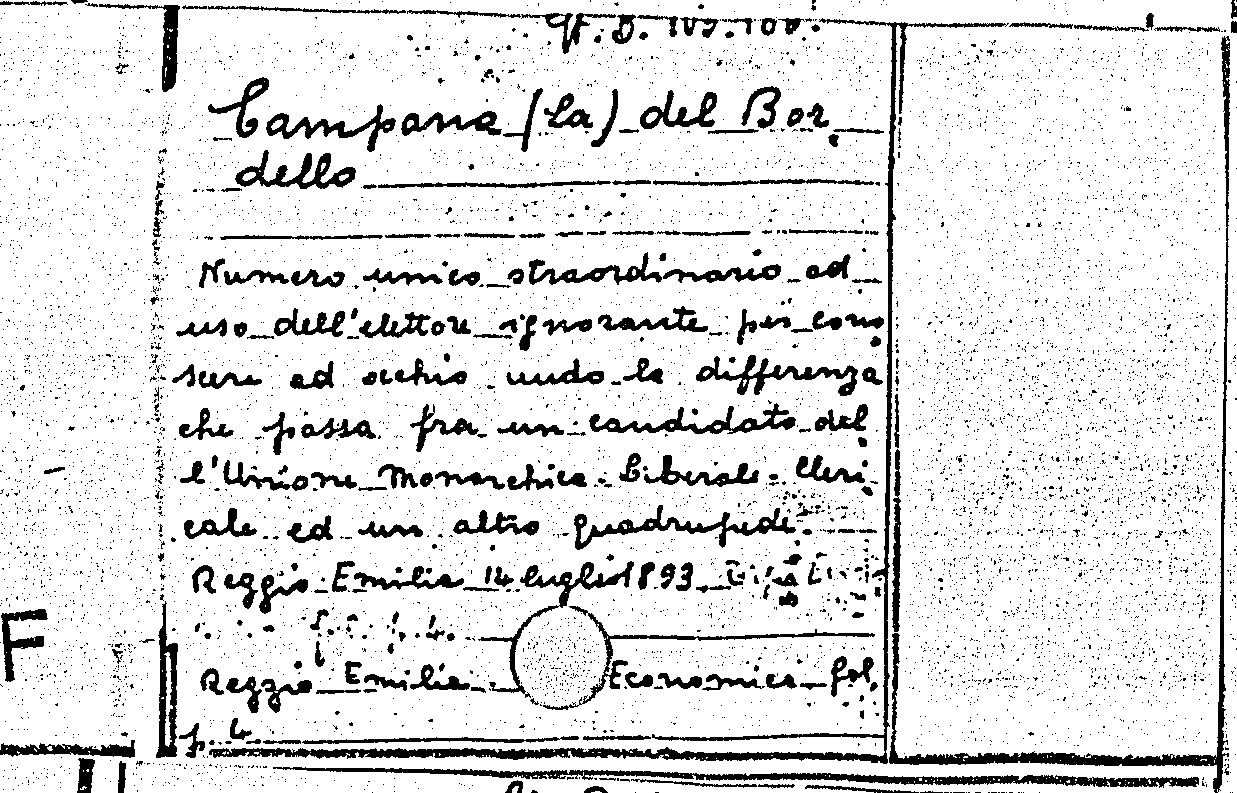 Campana (La) del Bor
dello
Numero unico straordinario ad
uso dell'elettore ignorante per cono
scere ad occhio nudo la differenza
che passa fra un candidato del
l'Unione Monarchica-Liberale-Cleri
cale ed un altro quadrupede.
Reggio Emilia 14 luglio 1893
Reggio Emilia. Economica fol.
p. 4
F